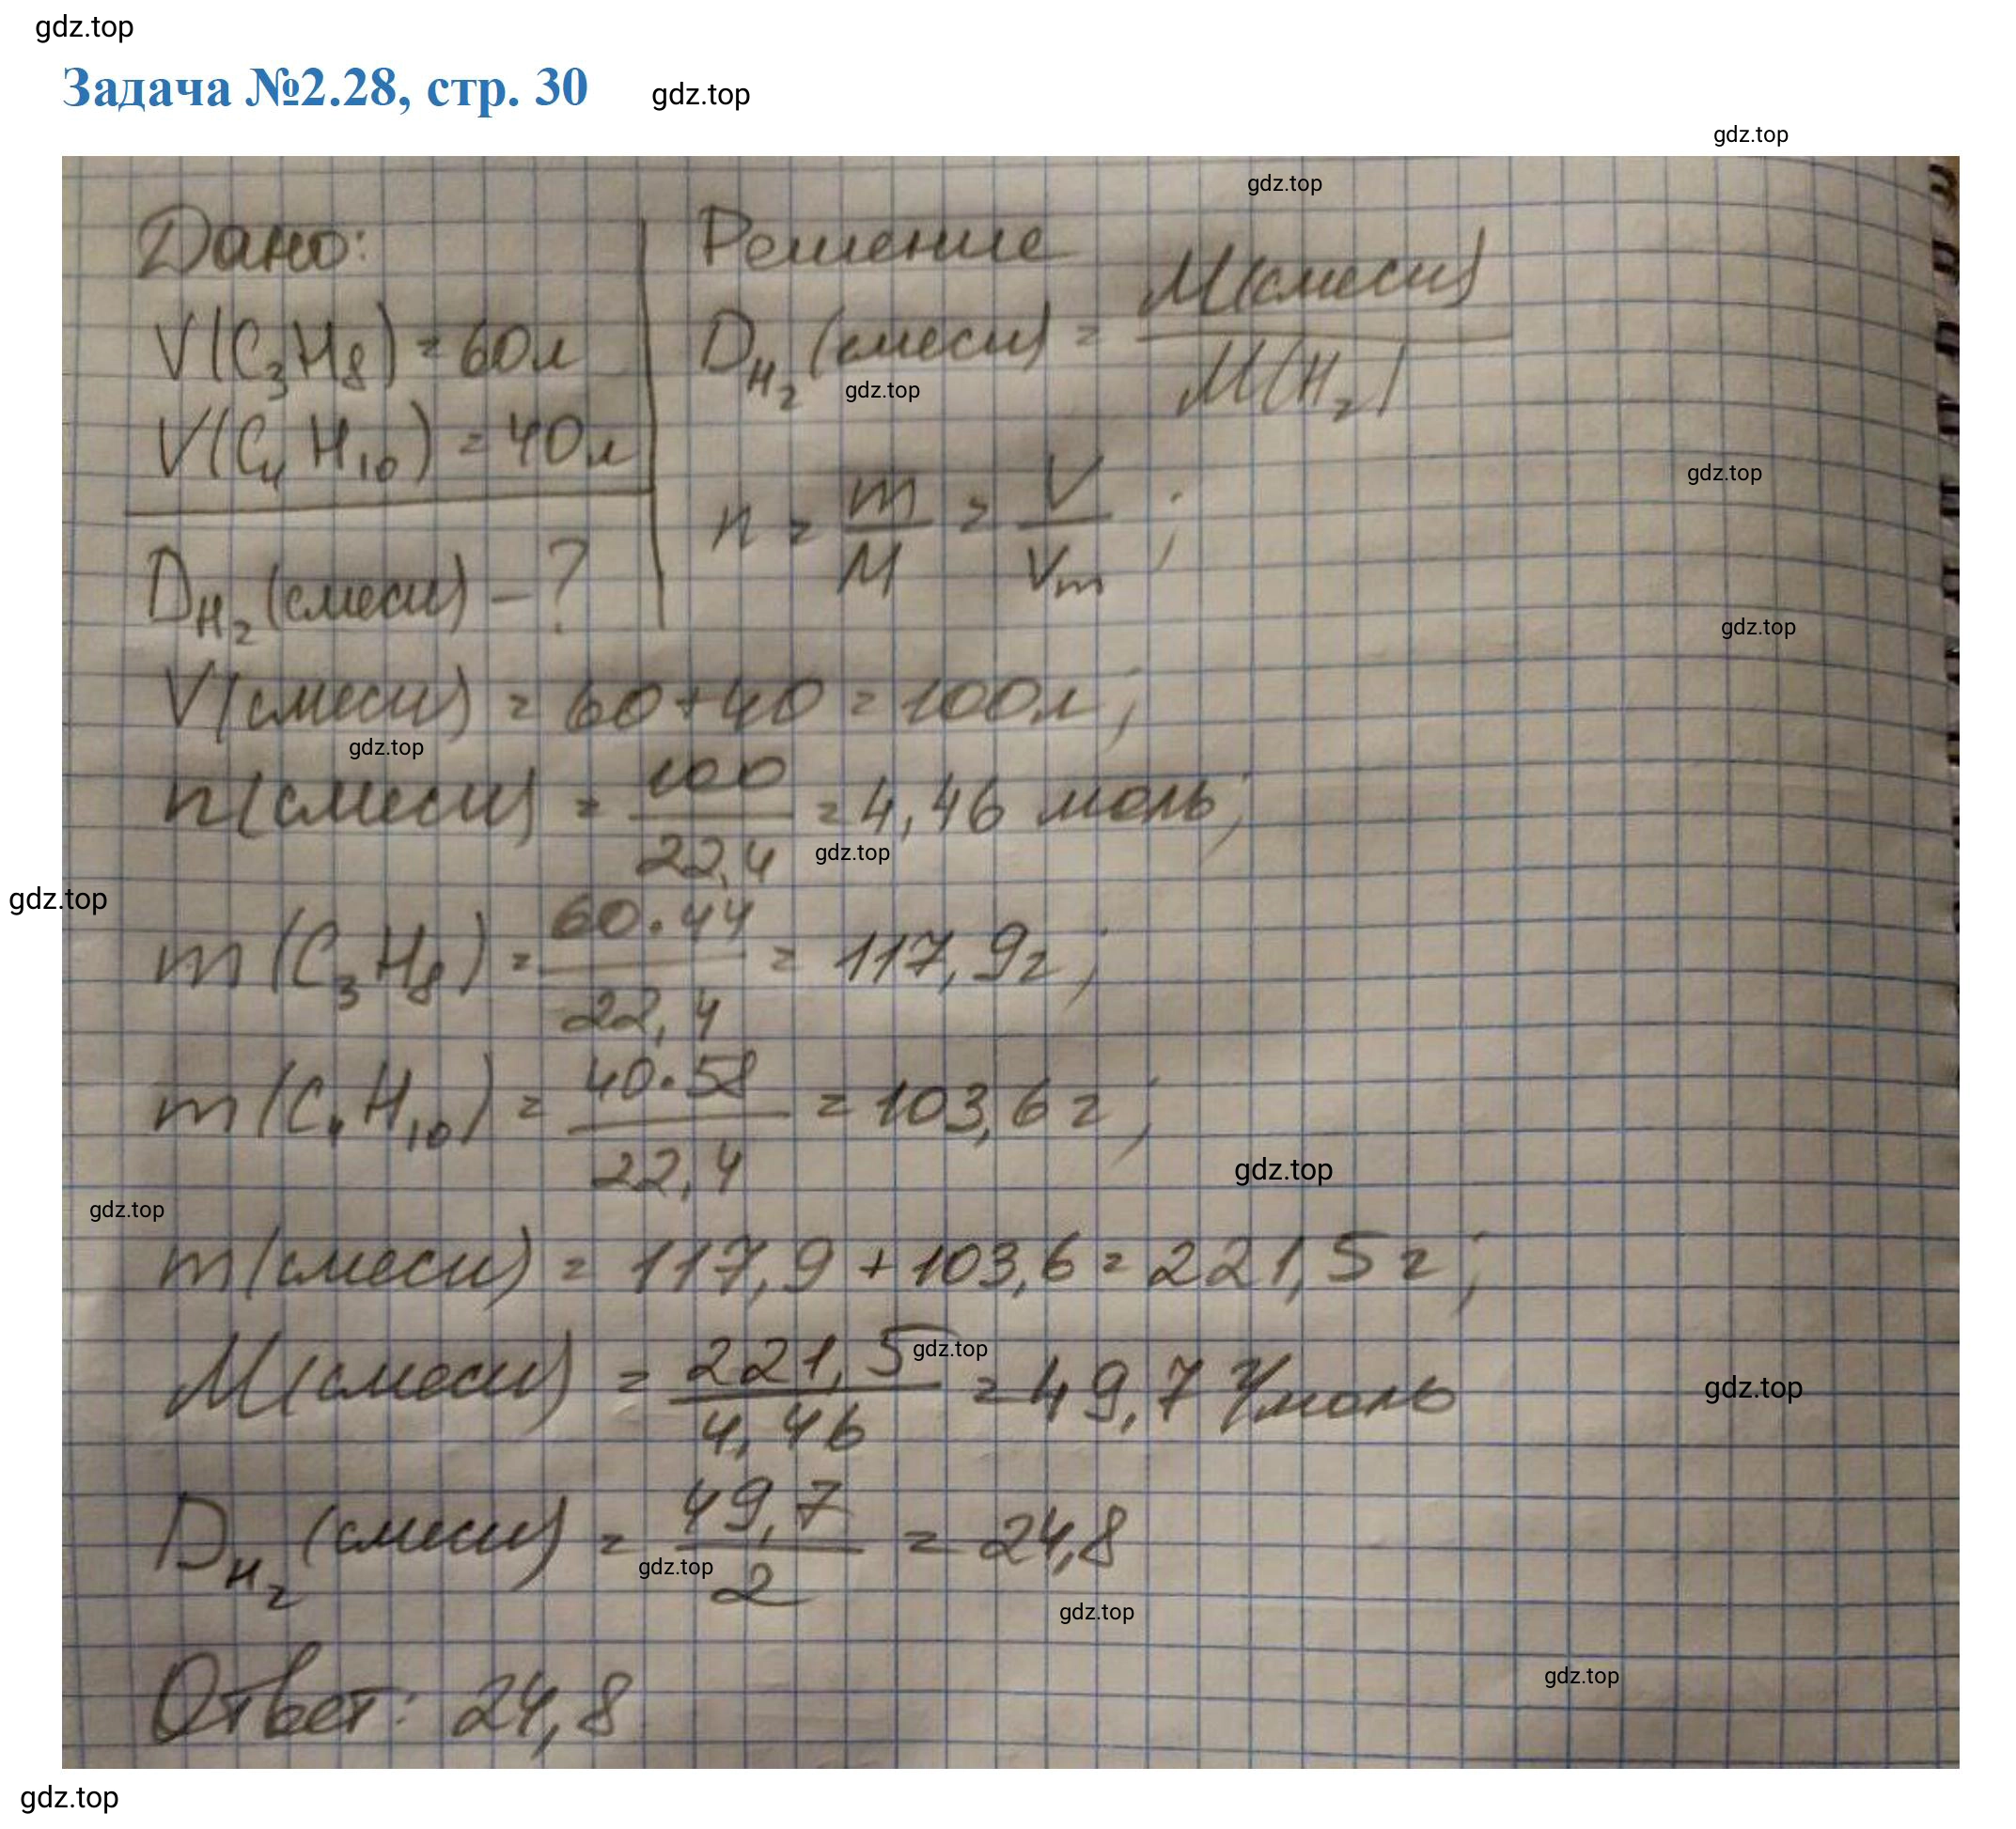 gdz.top
Задача №2.28, стр. 30
gdz.top
gdz.top
gdz.top
Дано:
V(C₃H₈) = 60л
V(C₄H₁₀) = 40л
D_H₂(смеси) - ?
Решение
D_H₂(смеси) = M(смеси) / M(H₂)
gdz.top
n = m/M = V/Vm ;
gdz.top
gdz.top
V(смеси) = 60+40 = 100л;
gdz.top
n(смеси) = 100/22,4 = 4,46 моль;
gdz.top
gdz.top
m(C₃H₈) = 60·44/22,4 = 117,9г;
m(C₄H₁₀) = 40·58/22,4 = 103,6г;
gdz.top
gdz.top
m(смеси) = 117,9 + 103,6 = 221,5г;
gdz.top
M(смеси) = 221,5/4,46 = 49,7 г/моль
gdz.top
D_H₂(смеси) = 49,7/2 = 24,8
gdz.top
gdz.top
gdz.top
Ответ: 24,8
gdz.top